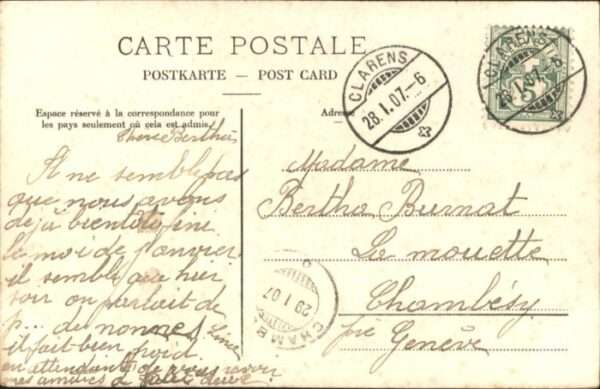 CARTE POSTALE
POSTKARTE — POST CARD
Espace réservé à la correspondance pour
les pays seulement où cela est admis.
Adresse
CLARENS
28.I.07.-6
CLARENS
28.I.07.-6
5
Chère Bertha
Il ne semble pas
que nous avons
déjà bientôt fini
le moi de Janvier
il semble que hier
soir on parlait de
de nonnes
il fait bien froid
en attendant de vous revoir
mes amitiés
Madame
Bertha Burnat
La mouette
Chambésy
près Genève
29 I 07